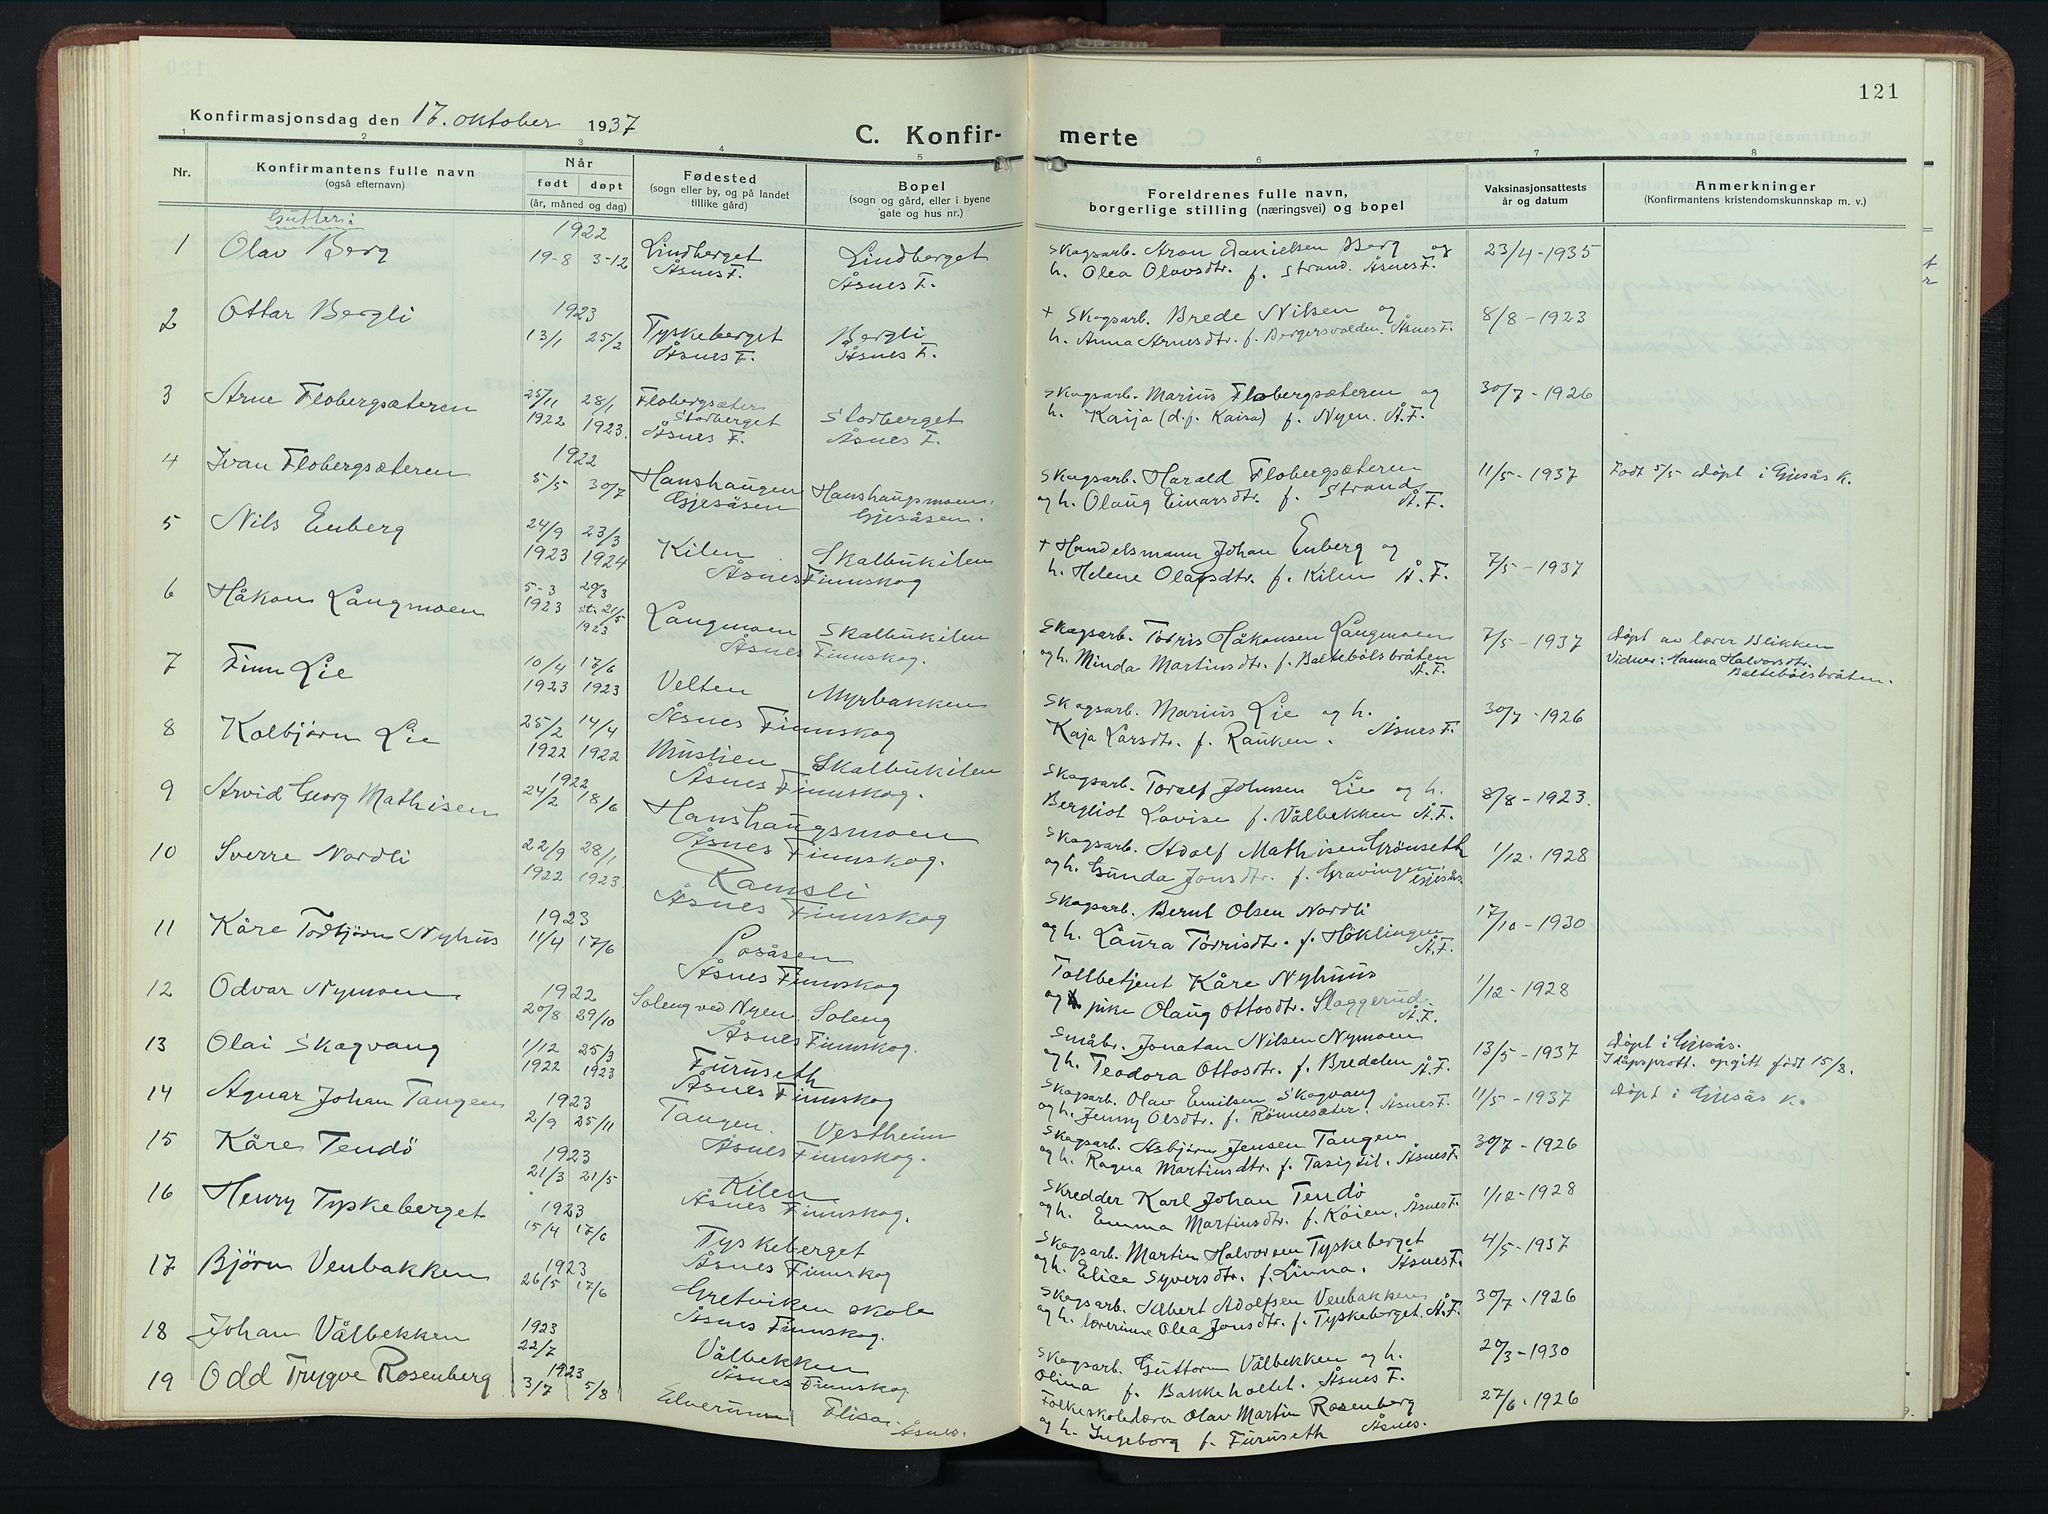 121
Konfirmasjonsdag den 17. oktober 1937
C. Konfir- merte
1 2 3 4 5 6 7 8
Nr.
Konfirmantens fulle navn
(også efternavn)
Når
født døpt
(år, måned og dag)
Fødested
(sogn eller by, og på landet
tillike gård)
Bopel
(sogn og gård, eller i byene
gate og hus nr.)
Foreldrenes fulle navn,
borgerlige stilling (næringsvei) og bopel
Vaksinasjonsattests
år og datum
Anmerkninger
(Konfirmantens kristendomskunnskap m. v.)
Gutter:
1 Olav Berg 1922 19-8 3-12 Lindberget Åsnes F. Lindberget Åsnes F. Skogsarb. Aron Danielsen Berg og
h. Olea Olavsdtr. f. Strand. Åsnes F. 23/4-1935
2 Ottar Bergli 1923 13/1 25/2 Tyskeberget Åsnes F. Bergli Åsnes F. + Skogsarb. Brede Nilsen og
h. Anna Arnesdtr. f. Bergersvolden. Åsnes F. 8/8-1923
3 Arne Flobergsæteren 25/11 1922 28/1 1923. Flobergsæter Storberget Åsnes F. Storberget Åsnes F. Skogsarb. Marius Flobergsæteren og
h. Kaija (d.p. Kaisa) f. Nyen. Å.F. 30/7-1926
4 Ivan Flobergsæteren 1922 5/5 30/7 Hanshaugen Gjesåsen Hanshaugsmoen. Gjesåsen. Skogsarb. Harald Flobergsæteren
og h. Olaug Einarsdtr. f. Strand Å.F. 11/5-1937 Født 5/5 døpt i Gjesås K.
5 Nils Enberg 24/9 1923 23/3 1924 Kilen Skalbukilen Åsnes Finnskog + Handelsmann Johan Enberg og
h. Helene Olafsdtr. f. Kilen Å.F. 7/5-1937
6 Håkon Langmoen 5-3 1923 29/3 st. 21/5 1923 Langmoen Skalbukilen Åsnes Finnskog. Skogsarb. Tørris Håkonsen Langmoen
og h. Minda Martinsdtr. f. Baltebølsbråten Å.F. 7/5-1937 døpt av lærer Blikken
Vidner: Hanna Halvorsdtr.
Baltebølsbråten.
7 Finn Lie 10/4 1923 17/6 1923 Velten Myrbakken Åsnes Finnskog Skogsarb. Marius Lie og h.
Kaja Larsdtr. f. Rauken. Åsnes F. 30/7-1926
8 Kolbjørn Lie 25/2 1922 14/4 1922 Muslien Skalbukilen Åsnes Finnskog. Skogsarb. Toralf Johnsen Lie og h.
Bergliot Lovise f. Vålbekken Å.F. 8/8-1923.
9 Arvid Georg Mathisen 1922 24/2 18/6 Hanshaugsmoen Åsnes Finnskog. Skogsarb. Adolf Mathisen Grønseth
og h. Gunda Jonsdtr. f. Gravingen Gjesås. 1/12-1928
10 Sverre Nordli 22/9 1922 28/1 1923. Ramsli Åsnes Finnskog Skogsarb. Bernt Olsen Nordli
og h. Laura Tørrisdtr. f. Høklingen Å.F. 17/10-1930
11 Kåre Torbjørn Nyhus 1923 11/4 17/6 Posåsen Åsnes Finnskog Tollbetjent Kåre Nyhuus
og pike Olaug Ottosdtr. Slaggerud. Å.F. 1/12-1928
12 Odvar Nymoen 1922 20/8 29/10 Soleng ved Nyen. Soleng Åsnes Finnskog. Småbr. Jonatan Nilsen Nymoen
og h. Teodora Ottosdtr. f. Bredalen Å.F. 13/5-1937 døpt i Gjesås.
I dåpsprott. opgitt født 15/8.
13 Olai Skogvang 1/12 1922 25/3 1923 Furuseth Åsnes Finnskog Skogsarb. Olav Emilsen Skogvang
og h. Jenny Olsdtr. f. Rønnesæter. Åsnes F. 11/5-1937 døpt i Gjesås K.
14 Agnar Johan Tangen 1923 2/9 25/11 Tangen. Vestheim Åsnes Finnskog. Skogsarb. Asbjørn Jensen Tangen
og h. Ragna Martinsdtr. f. Tasigtil. Åsnes F. 30/7-1926
15 Kåre Tendø 1923 21/3 21/5 Kilen Åsnes Finnskog. Skredder Karl Johan Tendø
og h. Emma Martinsdtr. f. Køien. Åsnes F. 1/12-1928
16 Henry Tyskeberget 1923 15/4 17/6 Tyskeberget Åsnes Finnskog Skogsarb. Martin Halvorsen Tyskeberget
og h. Elise Syversdtr. f. Linna. Åsnes F. 4/5-1937
17 Bjørn Venbakken 1923 26/5 17/6 Gretviken skole Åsnes Finnskog. Skogsarb. Albert Adolfsen Venbakken
og h. lærerinne Olea Jonsdtr. f. Tyskeberget. Å.F. 30/7-1926
18 Johan Vålbekken 1923 22/7 Vålbekken Åsnes Finnskog Skogsarb. Guttorm Vålbekken og h.
Olina f. Bakkeholtet. Åsnes F. 20/3-1930
19 Odd Trygve Rosenberg 1923 3/7 5/8 Elverum Flisa. Åsnes. Folkeskolelærer Olav Martin Rosenberg
og h. Ingeborg f. Furuseth Åsnes. 27/6-1926